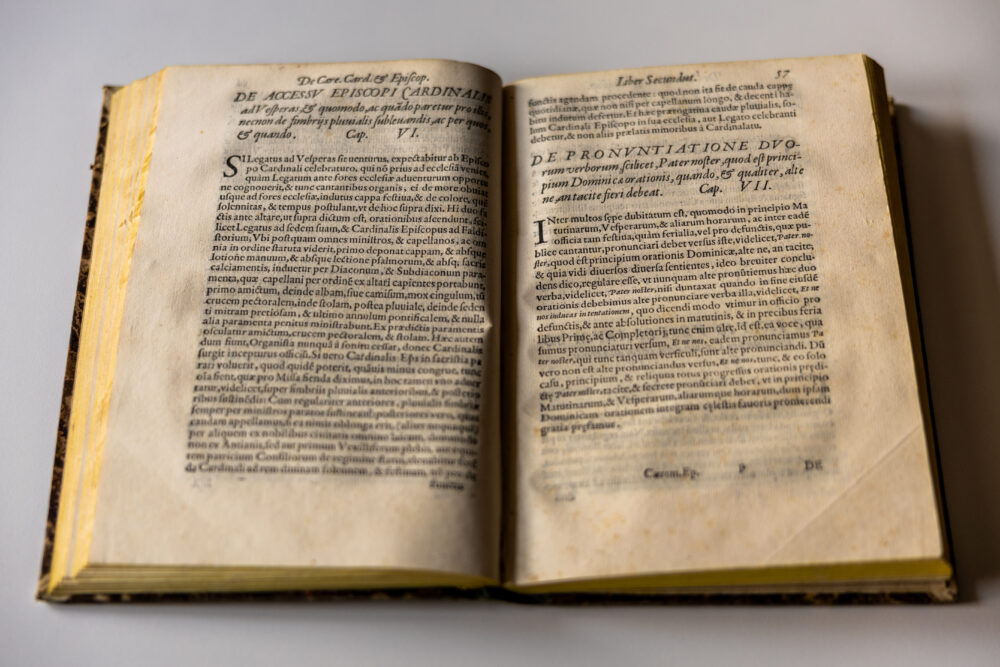 De Cære. Card. & Episcop.
DE ACCESSV EPISCOPI CARDINALIS
ad Vesperas, & quomodo, ac quādo paretur pro
necnon de fimbrijs pluuialis subleuandis, ac per quos,
& quando. Cap. VI.
SI Legatus ad Vesperas sit venturus, expectabitur ab Episco
po Cardinali celebraturo, qui nō prius ad ecclesiā veniet,
quàm Legatum ante fores ecclesiæ aduenturum opportu
ne cognouerit, & tunc cantantibus organis, ei de more obuiat
usque ad fores ecclesiæ, indutus cappa festiua, & de colore, qué
solennitas, & tempus postulant, vt de hoc supra dixi. Hi duo fa
ctis ante altare, ut supra dictum est, orationibus ascendunt, sci-
licet Legatus ad sedem suam, & Cardinalis Episcopus ad Faldi
storium, Vbi postquam omnes ministros, & capellanos, ac om
nia in ordine statuta viderit, primo deponat cappam, & absque
lotione manuum, & absque lectione psalmorum, & absq; sacris
calciamentis, induetur per Diaconum, & Subdiaconum para-
menta, quæ capellani per ordinē ex altari capientes portabunt,
primo amictum, deinde albam, siue camisium, mox cingulum, tū
crucem pectoralem, inde stolam, postea pluuiale, deinde
ti mitram pretiosam, & ultimo annulum pontificalem, & nulla
alia paramenta penitus ministrabunt. Ex prædictis paramentis
osculatur amictum, crucem pectoralem, & stolam. Hæc autem
dum fiunt, Organista nunquā à sonitu cessat, donec Cardinalis
surgit incepturus officiū. Si vero Cardinalis Eps in sacristia pa
rari voluerit, quod quidē poterit, quāuis minus congrue, tunc
oīa fient, quæ pro Missa fienda diximus, in hoc tamen vno aduer
tatur, videlicet, super fimbrijs pluuialis anterioribus, & posterio
ribus sustinēdis: Cum regulariter anteriores, pluuialis fimbriæ
semper per ministros paratos sustineant, posteriores vero, quam
caudam appellamus, si ea nimis oblonga erit,
per aliquem ex nobilibus ciuitatis omnino laicum,
non ex Antianis, sed aut primum Vexilliferum plebis, aut
tem patricium Consiliorum de regimine status,
de Cardinali ad rem diuinam solemnem, & festiuam,
functis
Liber Secundus. 57
functis agendam procedente: quod non ita fit de cauda cappæ
quotidianæ, quæ non nisi per capellanum longo, & decenti ha-
bitu indutum defertur. Et hæc prærogatiua caudæ pluuialis, so-
lum Cardinali Episcopo in sua ecclesia, aut Legato celebranti
debetur, & non alijs prælatis minoribus à Cardinalatu.
DE PRONVNTIATIONE DVO-
rum verborum scilicet, Pater noster, quod est princi-
pium Dominicæ orationis, quando, & qualiter, alte
ne, an tacite fieri debeat. Cap. VII.
INter multos sepe dubitatum est, quomodo in principio Ma
tutinarum, Vesperarum, & aliarum horarum, ac inter eadē
officia tam festiua, quàm ferialia, vel pro defunctis, quæ pu-
blice cantantur, pronunciari debet versus iste, videlicet, Pater no-
ster, quod est principium orationis Dominicæ, alte ne, an tacite,
& quia vidi diuersos diuersa sentientes, ideo breuiter conclu-
dens dico, regulare esse, vt nunquam alte pronūtiemus hæc duo
verba, videlicet, Pater noster, nisi duntaxat quando in fine eiusdē
orationis debebimus alte pronunciare verba illa, videlicet, Et ne
nos inducas in tentationem, quo dicendi modo vtimur in officio pro
defunctis, & ante absolutiones in matutinis, & in precibus feria
libus Primæ, ac Completorij, tunc enim alte, id est, ea voce, qua
sumus pronunciaturi versum, Et ne nos, eadem pronunciamus Pa
ter noster, qui tunc tanquam versiculi, sunt alte pronunciandi. Dū
vero non est alte pronunciandus versus, Et ne nos, tunc, & eo solo
casu, principium, & reliquus totus progressus orationis prędi-
ctę Pater noster, tacite, & secrete pronūciari debet, vt in principio
Matutinarum, & Vesperarum, aliarumque horarum, dum ipsam
Dominicam orationem integram cęlestis fauoris promerendi
gratia pręfamus.
Cærem. Ep. P DE